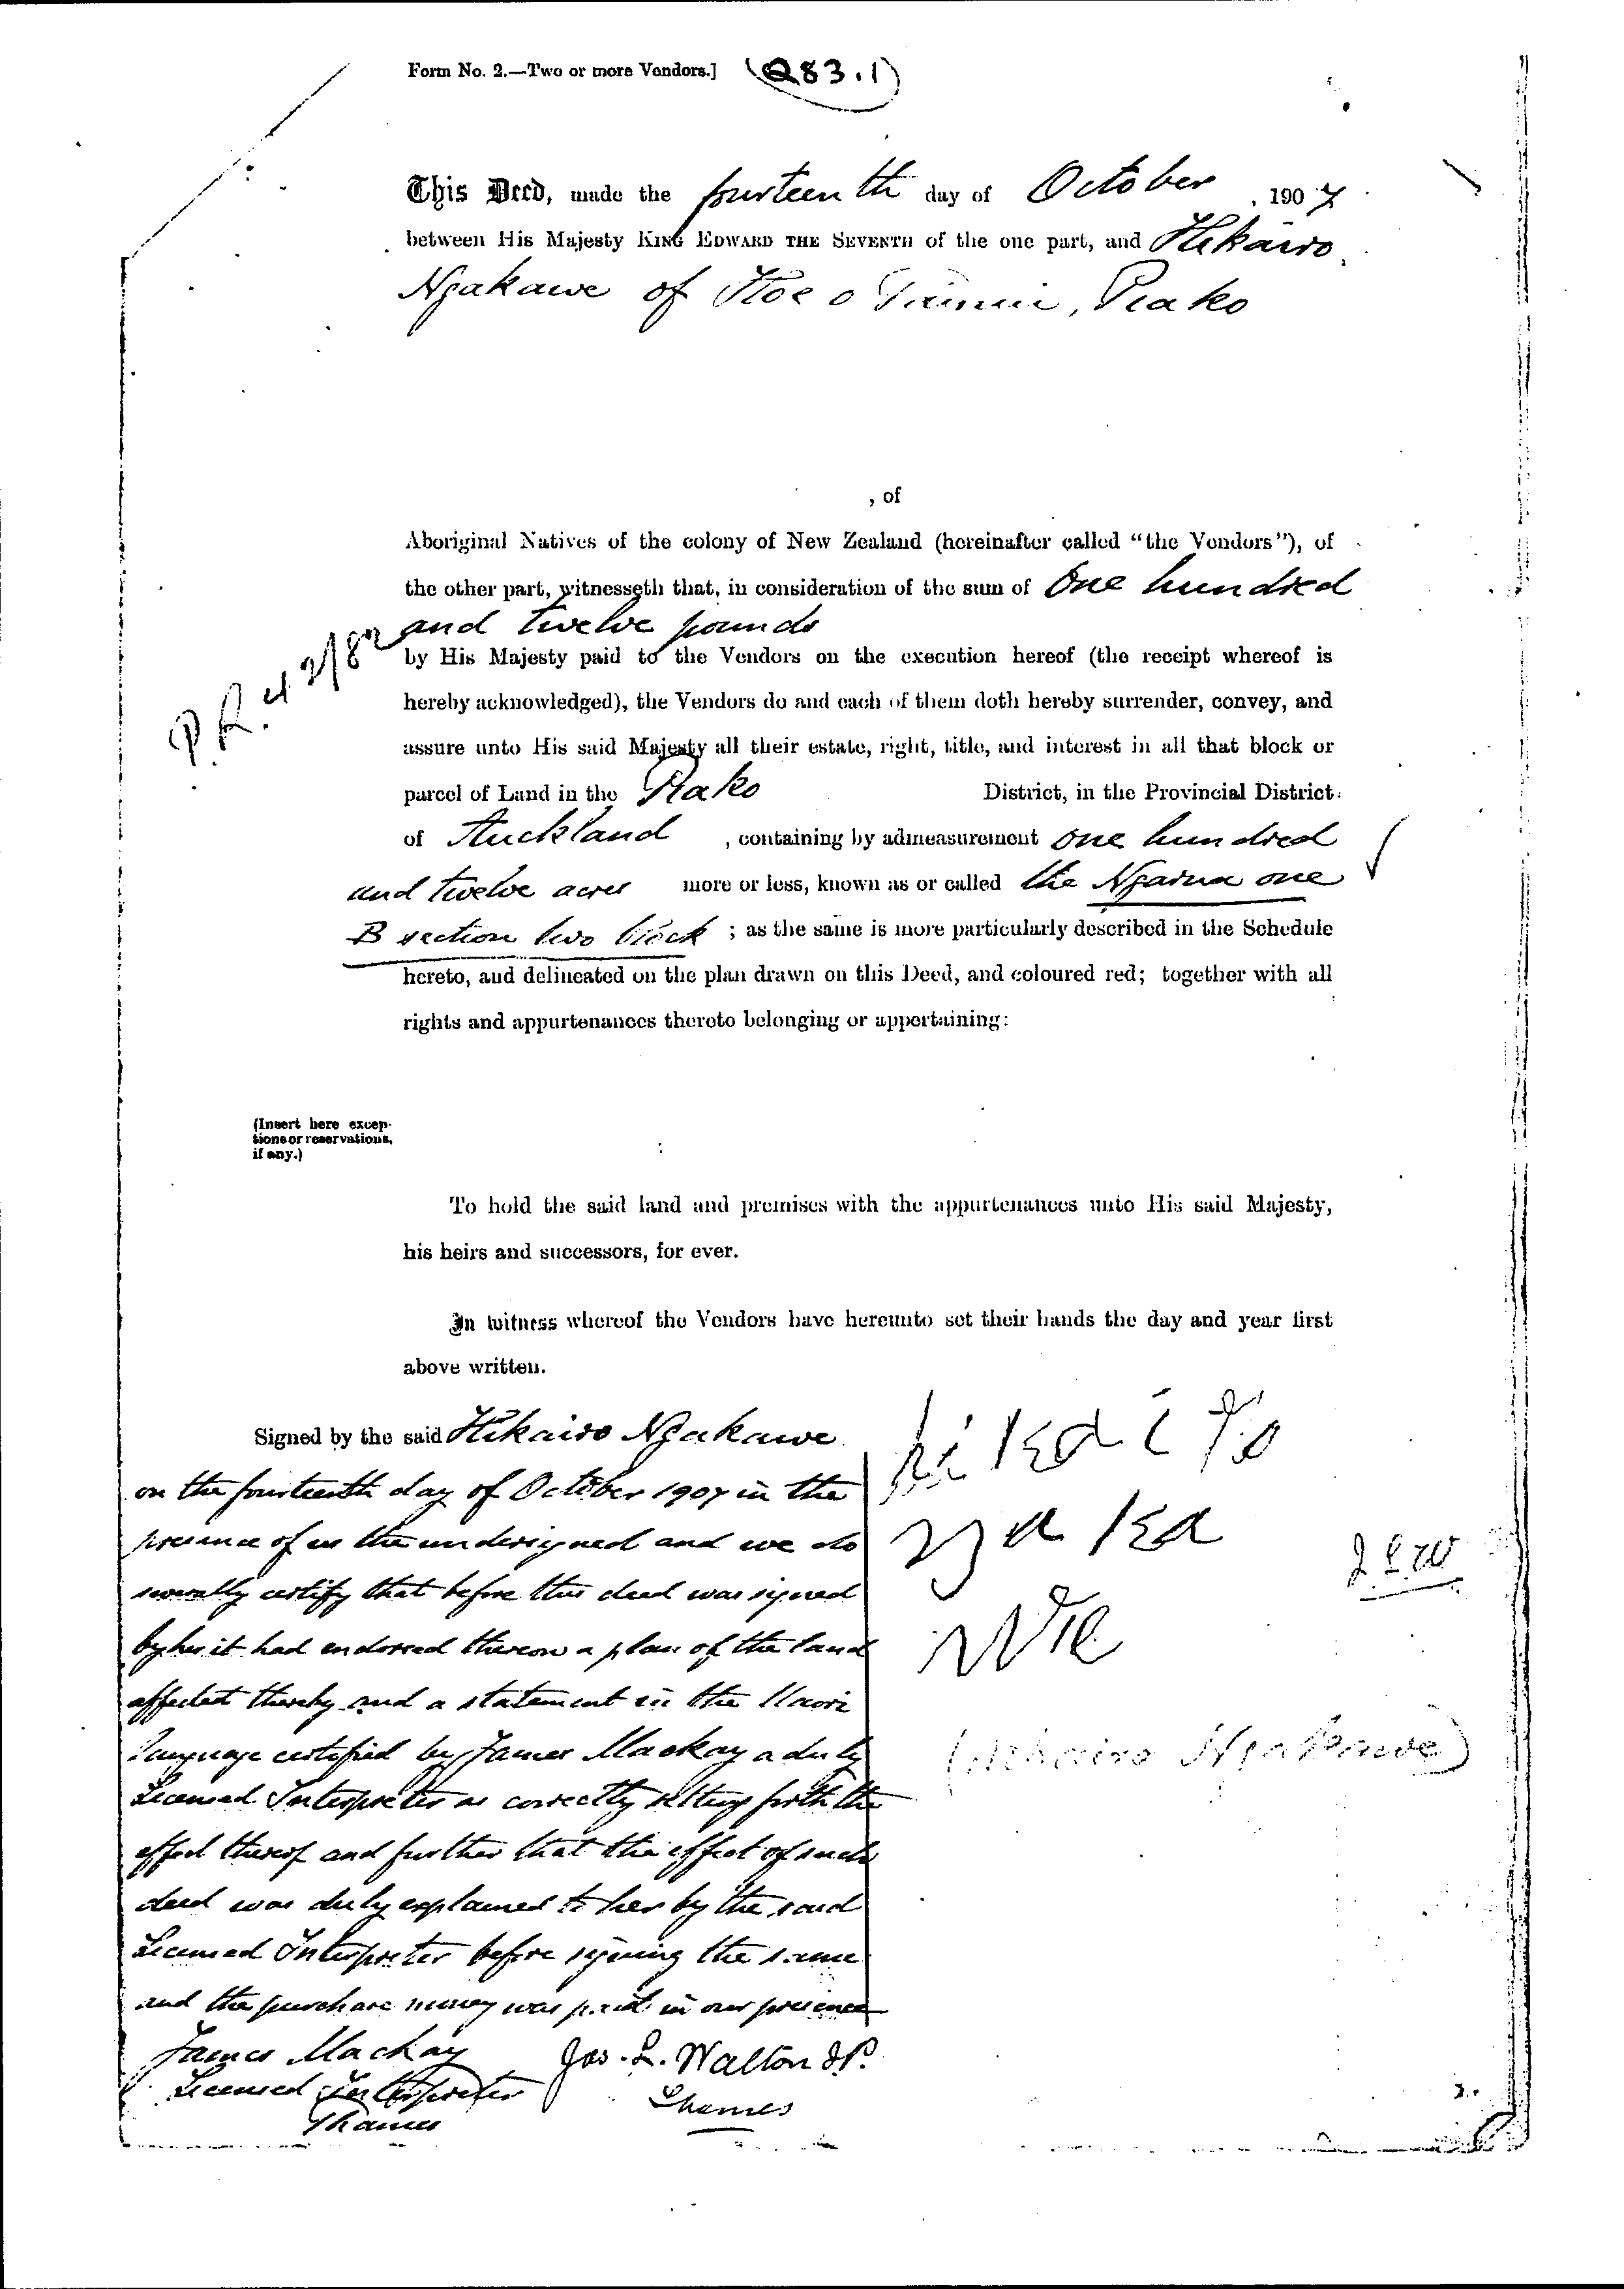 Form No. 2.—Two or more Vendors.] (Q83.1)
This Deed, made the fourteenth day of October, 1907
between His Majesty KING EDWARD THE SEVENTH of the one part, and Hikairo
Ngakawe of Hoe o Tainui, Piako
, of
Aboriginal Natives of the colony of New Zealand (hereinafter called "the Vendors"), of
the other part, witnesseth that, in consideration of the sum of One hundred
and twelve pounds
by His Majesty paid to the Vendors on the execution hereof (the receipt whereof is
hereby acknowledged), the Vendors do and each of them doth hereby surrender, convey, and
assure unto His said Majesty all their estate, right, title, and interest in all that block or
parcel of Land in the Piako District, in the Provincial District
of Auckland, containing by admeasurement one hundred
and twelve acres more or less, known as or called the Ngarua one
B section two block; as the same is more particularly described in the Schedule
hereto, and delineated on the plan drawn on this Deed, and coloured red; together with all
rights and appurtenances thereto belonging or appertaining:
(Insert here excep-
tions or reservations,
if any.)
To hold the said land and premises with the appurtenances unto His said Majesty,
his heirs and successors, for ever.
In witness whereof the Vendors have hereunto set their hands the day and year first
above written.
Signed by the said Hikairo Ngakawe
on the fourteenth day of October 1907 in the
presence of us the undersigned and we do
severally certify that before this deed was signed
by her it had endorsed thereon a plan of the land
affected thereby and a statement in the Maori
language certified by James Mackay a duly
Licensed Interpreter as correctly setting forth the
effect thereof and further that the effect of such
deed was duly explained to her by the said
Licensed Interpreter before signing the same
and the purchase money was paid in our presence
James Mackay
Licensed Interpreter
Thames
Jos. L. Walton JP.
Thames
hikairo
Ngaka
we
(Hikairo Ngakawe)